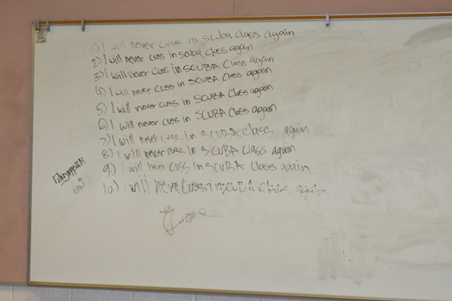 1) I will never cuss in scuba class again
2) I will never cuss in scuba class again
3) I will never cuss in SCUBA class again
4) I will never cuss in SCUBA class again
5) I will never cuss in SCUBA class again
6) I will never cuss in SCUBA class again
7) I will never cuss in SCUBA class again
8) I will never cuss in SCUBA class again
9) I will never cuss in SCUBA class again
10) will never cuss in